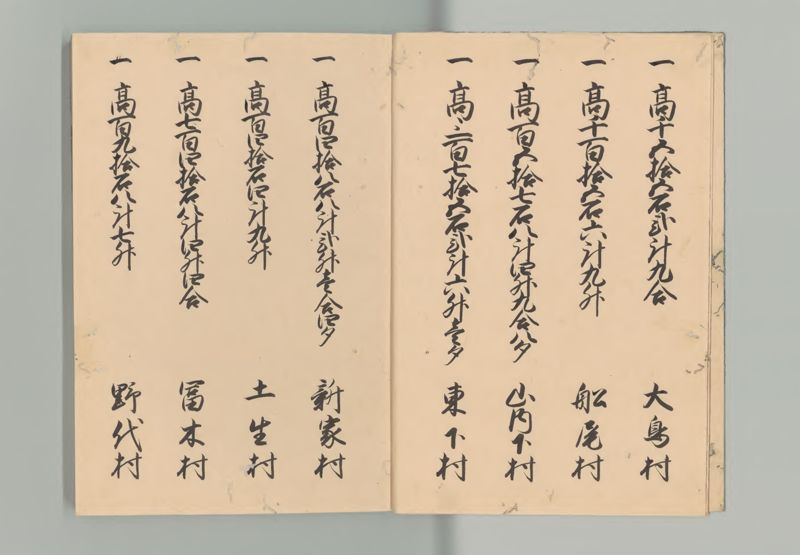 一 高千五拾六石弐斗九合 大鳥村
一 高千百拾六石六斗九升 船尾村
一 高百六拾七石八斗四升九合八夕 山内下村
一 高三百七拾六石弐斗六升壱夕 東下村
一 高百四拾八石八斗弐升壱合四夕 新家村
一 高百四拾石四斗九升 土生村
一 高七百四拾石八斗四升四合 冨木村
一 高百九拾石八斗七升 野代村